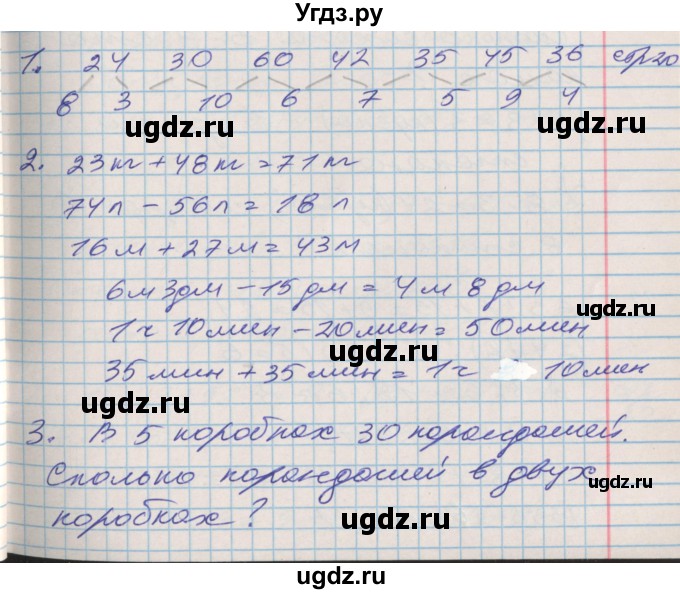 Угдз.ру
1. 24 30 60 42 35 45 36 стр 20
8 3 10 6 7 5 9 4
ugdz.ru ugdz.ru
2. 23 кг + 48 кг = 71 кг
74 л - 56 л = 18 л
ugdz.ru ugdz.ru
16 м + 27 м = 43 м
6 м 3 дм - 15 дм = 4 м 8 дм
1 ч 10 мин - 20 мин = 50 мин
ugdz.ru
35 мин + 35 мин = 1 ч 10 мин
ugdz.ru
3. В 5 коробках 30 карандашей.
Сколько карандашей в двух
ugdz.ru ugdz.ru
коробках?
ugdz.ru
ugdz.ru